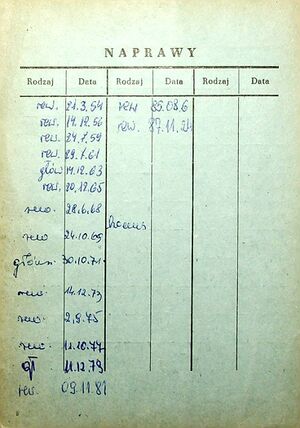 NAPRAWY
Rodzaj Data Rodzaj Data Rodzaj Data
rew. 21.3.54 rew 85.08.6
rew. 14.12.56 rew. 87.11.24
rew. 24.7.59
rew. 29.7.61
głów 14.12.63
rew. 20.12.65
rew. 28.6.68
rew 24.10.69
główn. 30.10.71
rew. 14.12.73
rew. 2.9.75
rew. 11.10.77
11.12.79
rew. 09.11.81